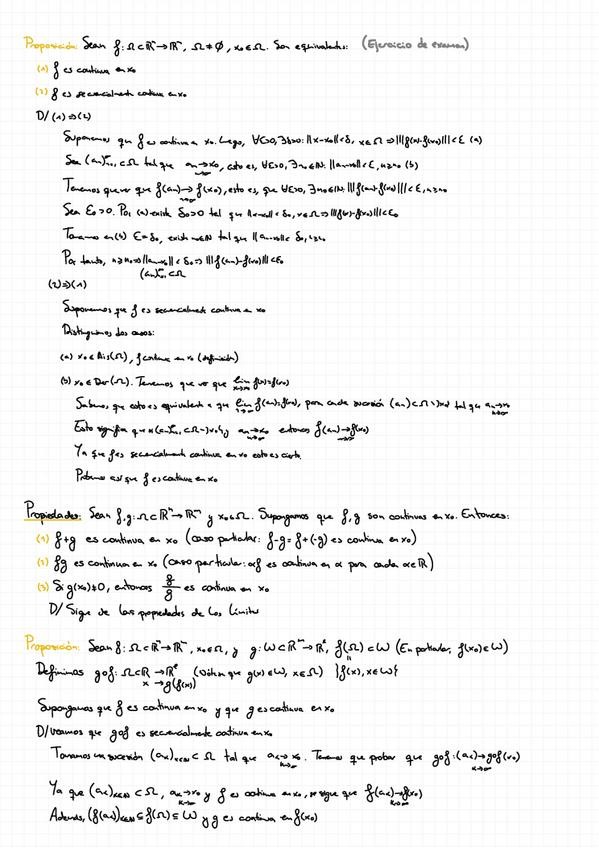 Proposición: Sean f: Ω⊂ℝⁿ→ℝᵐ, Ω≠∅, x₀∈Ω. Son equivalentes: (Ejercicio de examen)
(1) f es continua en x₀
(2) f es secuencialmente continua en x₀
D/ (1)⇒(2)
Suponemos que f es continua x₀. Luego, ∀ε>0, ∃δ>0: ||x-x₀||<δ, x∈Ω ⇒ |||f(x)-f(x₀)|||<ε (a)
Sea (aₙ)ₙ₌₁^∞ ⊂Ω tal que aₙ→x₀, esto es, ∀ε>0, ∃n₀∈ℕ: ||aₙ-x₀||<ε, n≥n₀ (b)
Tenemos que ver que f(aₙ)→f(x₀), esto es, que ∀ε>0, ∃n₀∈ℕ: |||f(aₙ)-f(x₀)|||<ε, n≥n₀
Sea ε₀>0. Por (a) existe δ₀>0 tal que ||x-x₀||<δ₀, x∈Ω ⇒ |||f(x)-f(x₀)|||<ε₀
Tomamos en (b) ε=δ₀, existe n₀∈ℕ tal que ||aₙ-x₀||<δ₀, n≥n₀
Por tanto, n≥n₀ ⇒ ||aₙ-x₀||<δ₀ ⇒ |||f(aₙ)-f(x₀)|||<ε₀
(aₙ)ₙ₌₁^∞ ⊂Ω
(2)⇒(1)
Suponemos que f es secuencialmente continua en x₀
Distinguimos dos casos:
(a) x₀∈Ais(Ω), f continua en x₀ (definición)
(b) x₀∈Der(Ω). Tenemos que ver que lim x→x₀ f(x)=f(x₀)
Sabemos, que esto es equivalente a que lim n→∞ f(aₙ)=f(x₀), para cada sucesión (aₙ)⊂Ω\{x₀} tal que aₙ→x₀ n→∞
Esto significa que si (aₙ)ₙ₌₁^∞ ⊂Ω\{x₀} y aₙ→x₀ n→∞ entonces f(aₙ)→f(x₀) n→∞
Ya que f es secuencialmente continua en x₀ esto es cierto.
Probamos así que f es continua en x₀
Propiedades: Sean f,g: Ω⊂ℝⁿ→ℝᵐ y x₀∈Ω. Supongamos que f, g son continuas en x₀. Entonces:
(1) f+g es continua en x₀ (caso particular: f-g=f+(-g) es continua en x₀)
(2) fg es continua en x₀ (caso particular: αf es continua en α para cada α∈ℝ)
(3) Si g(x₀)≠0, entonces f/g es continua en x₀
D/ Sigue de las propiedades de los límites
Proposición: Sean f: Ω⊂ℝⁿ→ℝᵐ, x₀∈Ω, y g: W⊂ℝᵐ→ℝᵏ, f(Ω)⊂W (En particular, f(x₀)∈W)
Definimos g∘f: Ω⊂ℝ→ℝᵏ (Nótese que g(x)∈W, x∈Ω) {f(x), x∈W}
x→g(f(x))
Supongamos que f es continua en x₀ y que g es continua en x₀
D/ Veamos que g∘f es secuencialmente continua en x₀
Tomamos una sucesión (aₖ)ₖ∈ℕ ⊂ Ω tal que aₖ→x₀ k→∞. Tenemos que probar que g∘f:(aₖ)→g∘f(x₀) k→∞
Ya que (aₖ)ₖ∈ℕ ⊂Ω, aₖ→x₀ k→∞ y f es continua en x₀, se sigue que f(aₖ)→f(x₀) k→∞
Además, (f(aₖ))ₖ∈ℕ ⊆ f(Ω) ⊆ W y g es continua en f(x₀)